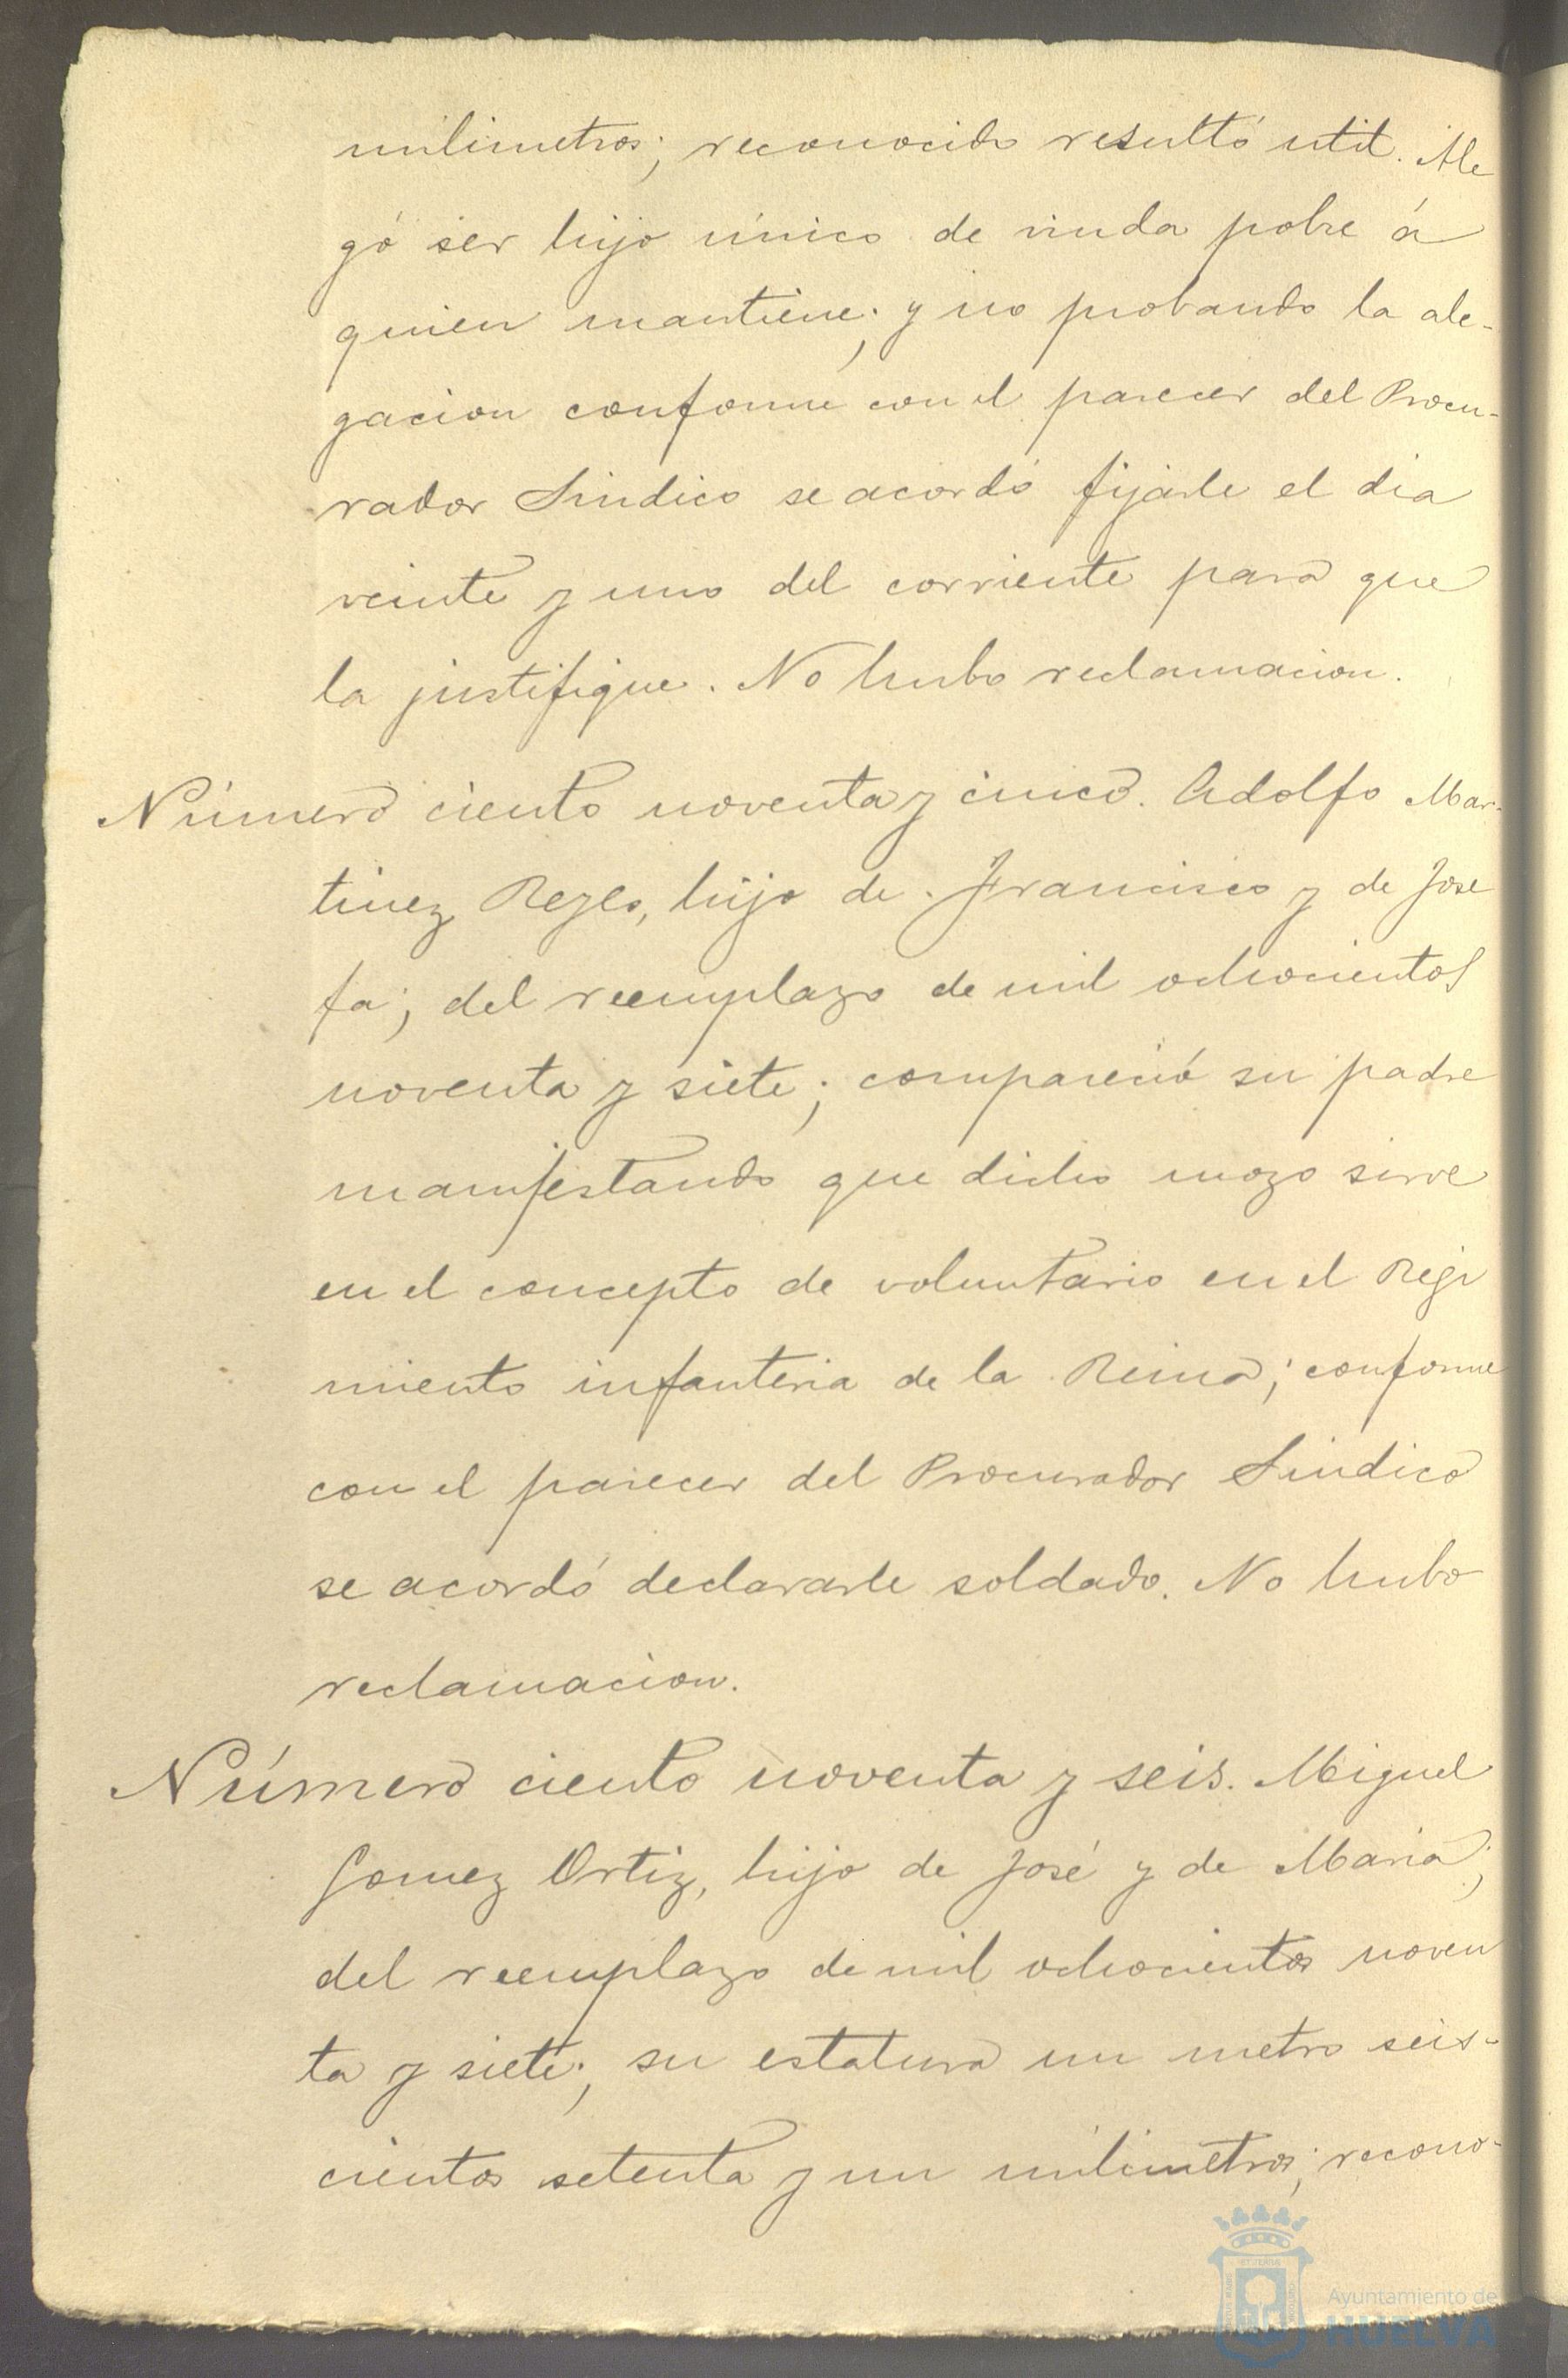 milimetros; reconocido resultó util. Ale
gó ser hijo único de viuda pobre á
quien mantiene; y no probando la ale-
gacion conforme con el parecer del Procu-
rador Sindico se acordó fijarle el dia
veinte y uno del corriente para que
la justifique. No hubo reclamacion.
Número ciento noventa y cinco. Adolfo Mar-
tinez Reyes, hijo de Francisco y de Jose
fa; del reemplazo de mil ochocientos
noventa y siete; compareció su padre
manifestando que dicho mozo sirve
en el concepto de voluntario en el Regi
miento infanteria de la Reina; conforme
con el parecer del Procurador Sindico
se acordó declararle soldado. No hubo
reclamacion.
Número ciento noventa y seis. Miguel
Gomez Ortiz, hijo de José y de Maria;
del reemplazo de mil ochocientos noven
ta y siete; su estatura un metro seis-
cientos setenta y un milimetros; recono-
Ayuntamiento de
HUELVA